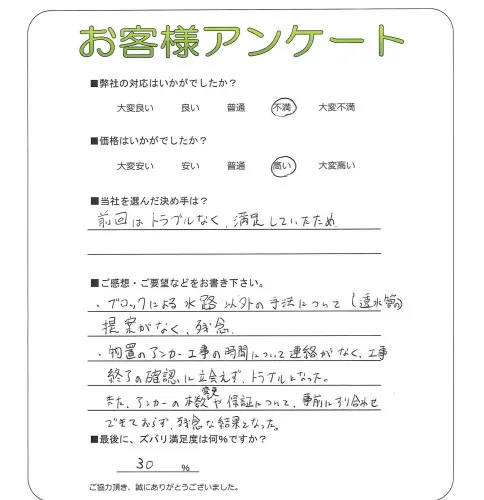 お客様アンケート
■弊社の対応はいかがでしたか？
大変良い 良い 普通 不満 大変不満
■価格はいかがでしたか？
大変安い 安い 普通 高い 大変高い
■当社を選んだ決め手は？
前回はトラブルなく、満足していたため
■ご感想・ご要望などをお書き下さい。
・ブロックによる水路以外の手法について（透水管の）
提案がなく、残念.
・物置のアンカー工事の時間について連絡がなく、工事
終了の確認に立会えず、トラブルとなった。
変更
また、アンカーの本数や保証について、事前にすり合わせ
できておらず、残念な結果となった。
■最後に、ズバリ満足度は何%ですか？
30 %
ご協力頂き、誠にありがとうございました。